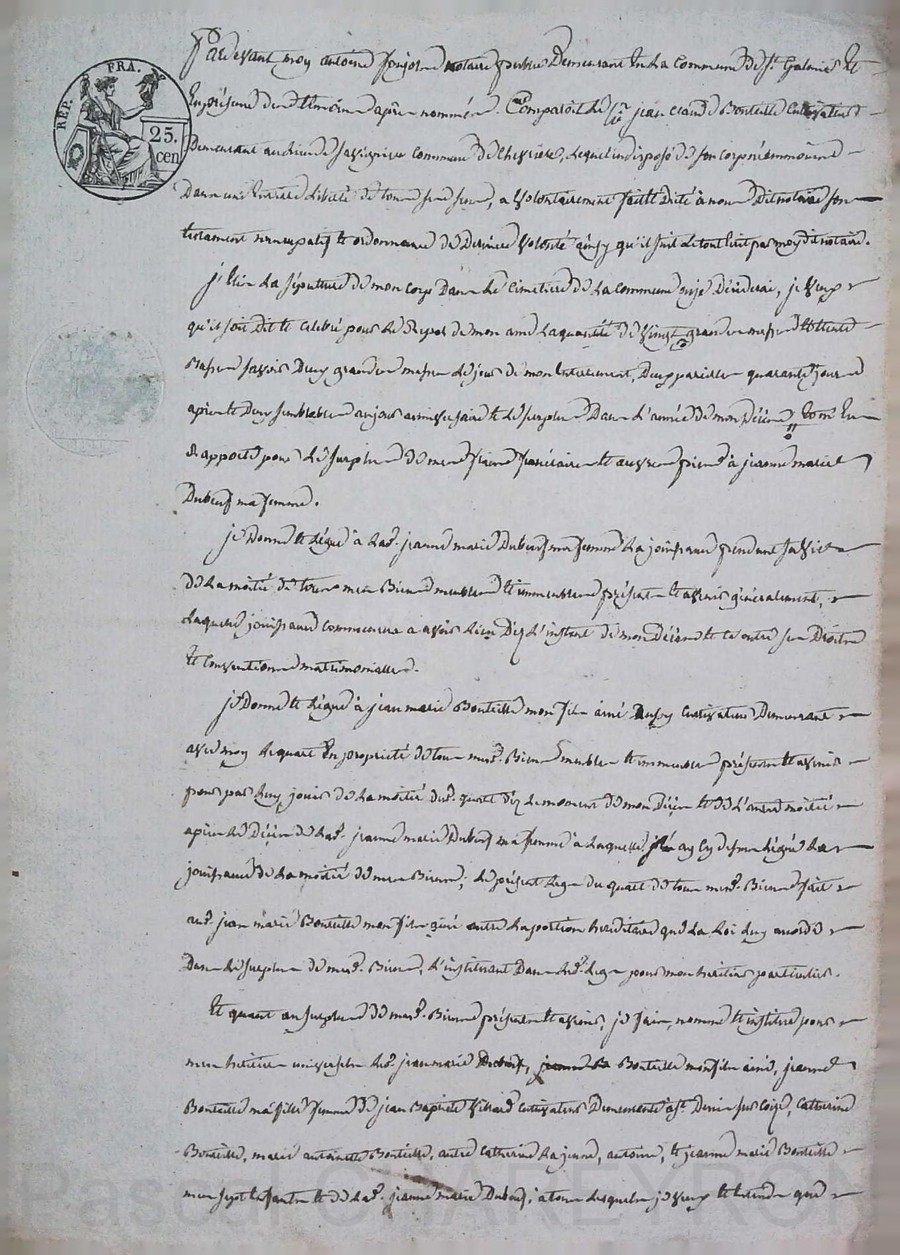 REP. FRA.
25. cen
Pardevant moy antoine notaire public Demeurant En La Commune De St. Galmier Et
En présence des témoins après nommés. Comparoit le sr. jean claude Bonteille Cultivateur
Demeurant au lieu de commune De Chevrières, lequel indisposé de son corps néanmoins
Dans une Entière liberté de tous ses sens, a Volontairement fait & Dicté à nous Dit notaire son
testament nuncupatif & ordonnance de Dernière Volonté ainsy qu'il suit le tout Ecrit par moy dit notaire.
j'Elis La sépulture de mon corps Dans le Cimetière de La commune où je Décéderai, je Veux
qu'il soit Dit & celebré pour le Repos de mon ame la quantité de Vingt grandes messes & trente
Basses savoir Deux grandes messes le jour de mon Enterrement, Deux pareilles quarante jours
après & Deux semblables au jour anniversaire & le surplus Dans l'année de mon Décès,
Rapporte pour le surplus de mes frais funéraires & œuvres pieuses à jeanne marie
Dubeuf ma femme.
je Donne & Légue à lad. jeanne marie Dubeuf ma femme la jouissance pendant sa Vie
de la moitié de tous mes Biens meubles & immeubles présents & avenir généralement,
laquelle jouissance commencera a avoir lieu Dez l'instant de mon Décès & ce outre ses Droits
& Conventions matrimoniales.
je Donne & Légue à jean marie Bonteille mon fils ainé cultivateur Demeurant
avec moy le quart En propriété de tous mesd. Biens meubles & immeubles présents & avenir
pour par Luy jouir de la moitié dud. quart dez le moment de mon Décès & de l'autre moitié
après le Décès de lad. jeanne marie Dubeuf ma femme à laquelle j'ai cy dessus Légué la
jouissance de la moitié de mes Biens; le présent Legs du quart de tous mesd. Biens fait
aud. jean marie Bonteille mon fils ainé outre la portion héréditaire que la Loi luy accorde
Dans le surplus de mesd. Biens, l'instituant Dans led. Legs pour mon héritier particulier.
Et quant au surplus de mesd. Biens présents & avenir, je fais, nomme & institue pour
mes héritiers universels led. jean marie Bonteille mon fils ainé, jeanne
Bonteille ma fille femme de jean Baptiste Villard cultivateur Demeurante à St. Denis sur Coize, Catherine
Bonteille, marie antoinette Bonteille, autre Catherine la jeune, antoine, & jeanne marie Bonteille
mes sept Enfants & de lad. jeanne marie Dubeuf, à tous lesquels je Veux & Entends que
Pascal CHAREYRON